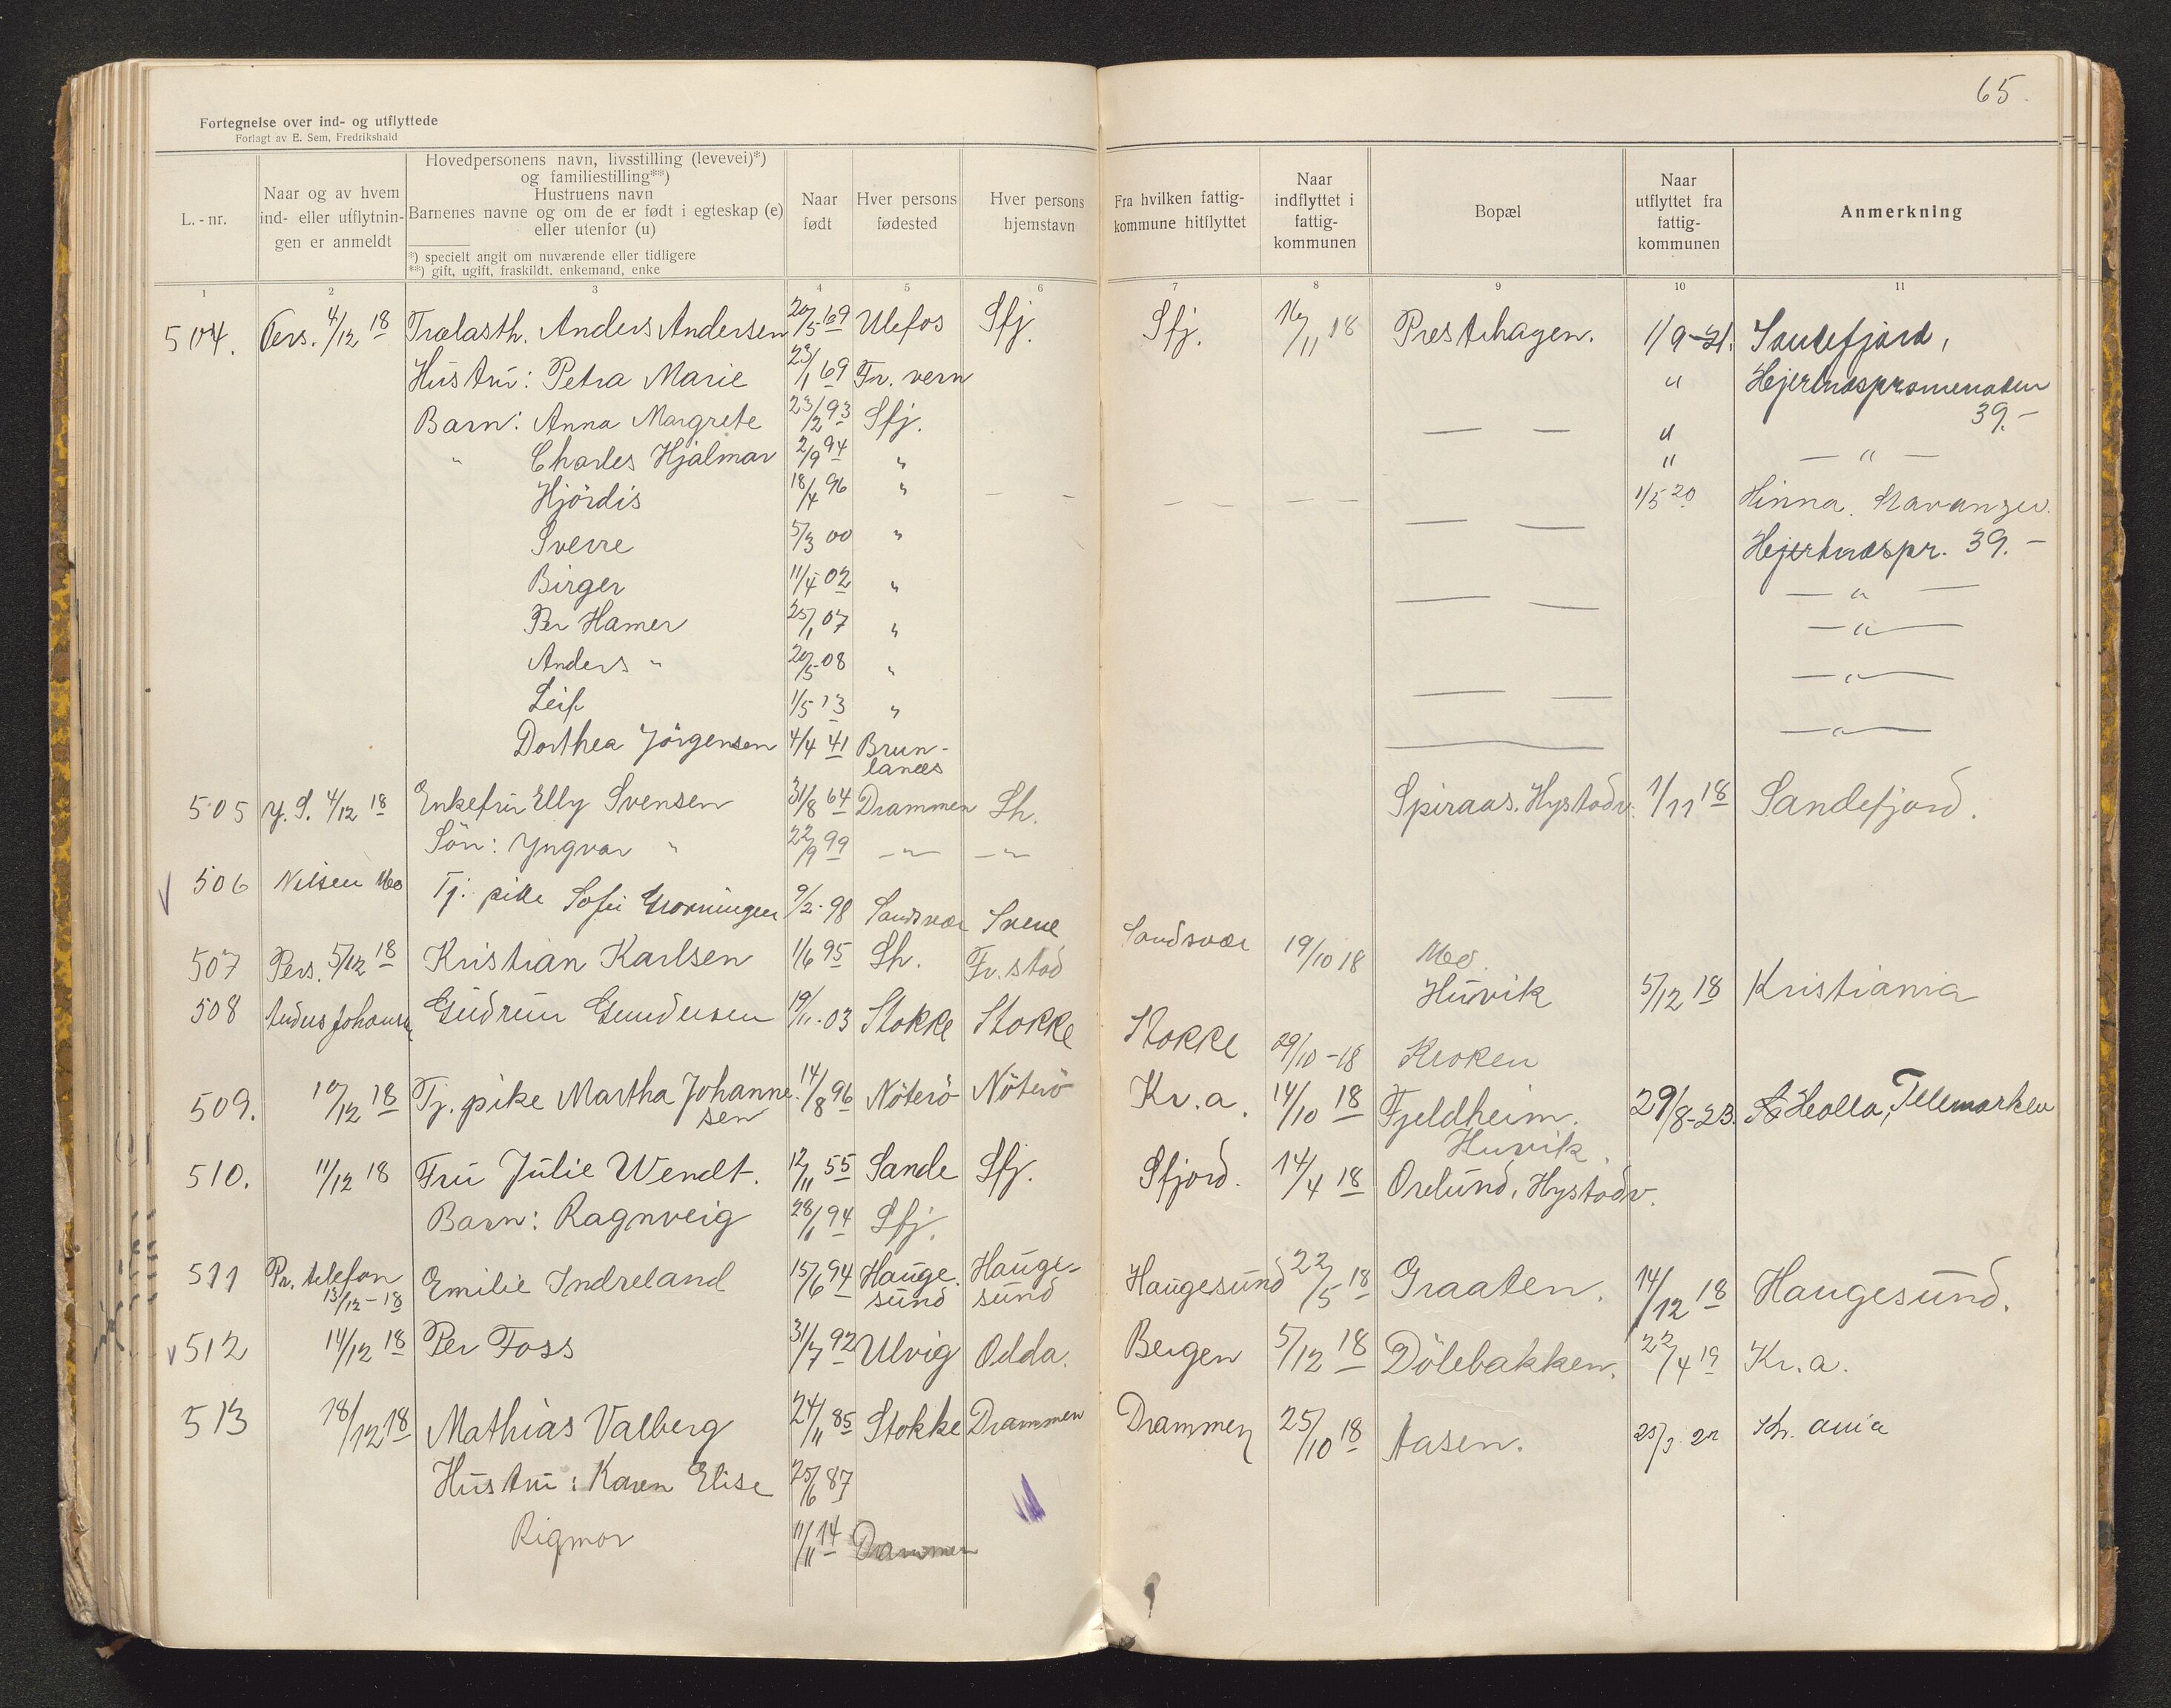 65.
Fortegnelse over ind- og utflyttede
Forlagt av E. Sem, Fredrikshald
L.-nr.
Naar og av hvem
ind- eller utflytnin-
gen er anmeldt
Hovedpersonens navn, livsstilling (levevei)*)
og familiestilling**)
Hustruens navn
Barnenes navne og om de er født i egteskap (e)
eller utenfor (u)
*) specielt angit om nuværende eller tidligere
**) gift, ugift, fraskildt, enkemand, enke
Naar
født
Hver persons
fødested
Hver persons
hjemstavn
Fra hvilken fattig-
kommune hitflyttet
Naar
indflyttet i
fattig-
kommunen
Bopæl
Naar
utflyttet fra
fattig-
kommunen
Anmerkning
1 2 3 4 5 6 7 8 9 10 11
504. Pers. 4/12 18 Trælasth. Anders Andersen 20/5 69 Ulefos Sfj. Sfj. 16/11 18 Prestehagen. 1/9-21. Sandefjord,
Hustru: Petra Marie 23/1 69 Fr. vern " Hjertnæspromenaden
39.-
Barn: Anna Margrete 23/12 93 Sfj. — — "
" Charles Hjalmar 2/9 94 " " — " —
Hjördis 18/4 96 " - - - - - - 1/5 20 Hinna. Stavanger.
Sverre 5/3 00 " — — Hjertnæspr. 39.-
Birger 11/4 02 " — " —
Per Hamer 25/1 07 " — — — " —
Anders " 20/5 08 " — " —
Leif 1/5 13 " — — — " —
Dorthea Jörgensen 4/4 41 Brun-
lanæs
505 y. S. 4/12 18 Enkefru Elly Svensen 31/8 64 Drammen Sh. Spiraas. Hystadv. 1/11 18 Sandefjord.
Sön: Yngvar " 22/9 99 — " — — " —
506 Nilsen Mo Tj. pike Sofie 9/2-98 Sandsvær Svene Sandsvær 19/10 18 Mo.
507 Pers. 5/12 18 Kristian Karlsen 1/6 95 Sh. Fr. stad Huvik 5/12 18 Kristiania
508 Anders Johansen Gudrun Gundersen 19/11-03 Stokke Stokke Stokke 29/10-18 Kroken
509. 10/12 18 Tj. pike Martha Johanne-
sen 14/8 96 Nöterö Nöterö Kr.a. 14/10 18 Fjeldheim.
Huvik. 29/8-23. Holla, Telemarken
510. 11/12 18 Fru Julie Wendt. 12/11 55 Sande Sfj. Sfjord. 14/4 18 Orelund, Hystadv.
Barn: Ragnveig 28/6 94 Sfj.
511 Pr. telefon
13/12-18 Emilie Indreland 15/6 94 Hauge-
sund Hauge-
sund Haugesund 22/5 18 Graaten. 14/12 18 Haugesund.
512 14/12 18 Per Foss 31/7 92 Ulvig Odda. Bergen 5/12 18 Dölebakken. 22/4 19 Kr.a.
513 18/12 18 Mathias Valberg 24/11 85 Stokke Drammen Drammen 25/10 18 Aasen. Kr. ania
Hustru: Karen Elise 25/6 87
Rigmor 11/11 14 Drammen